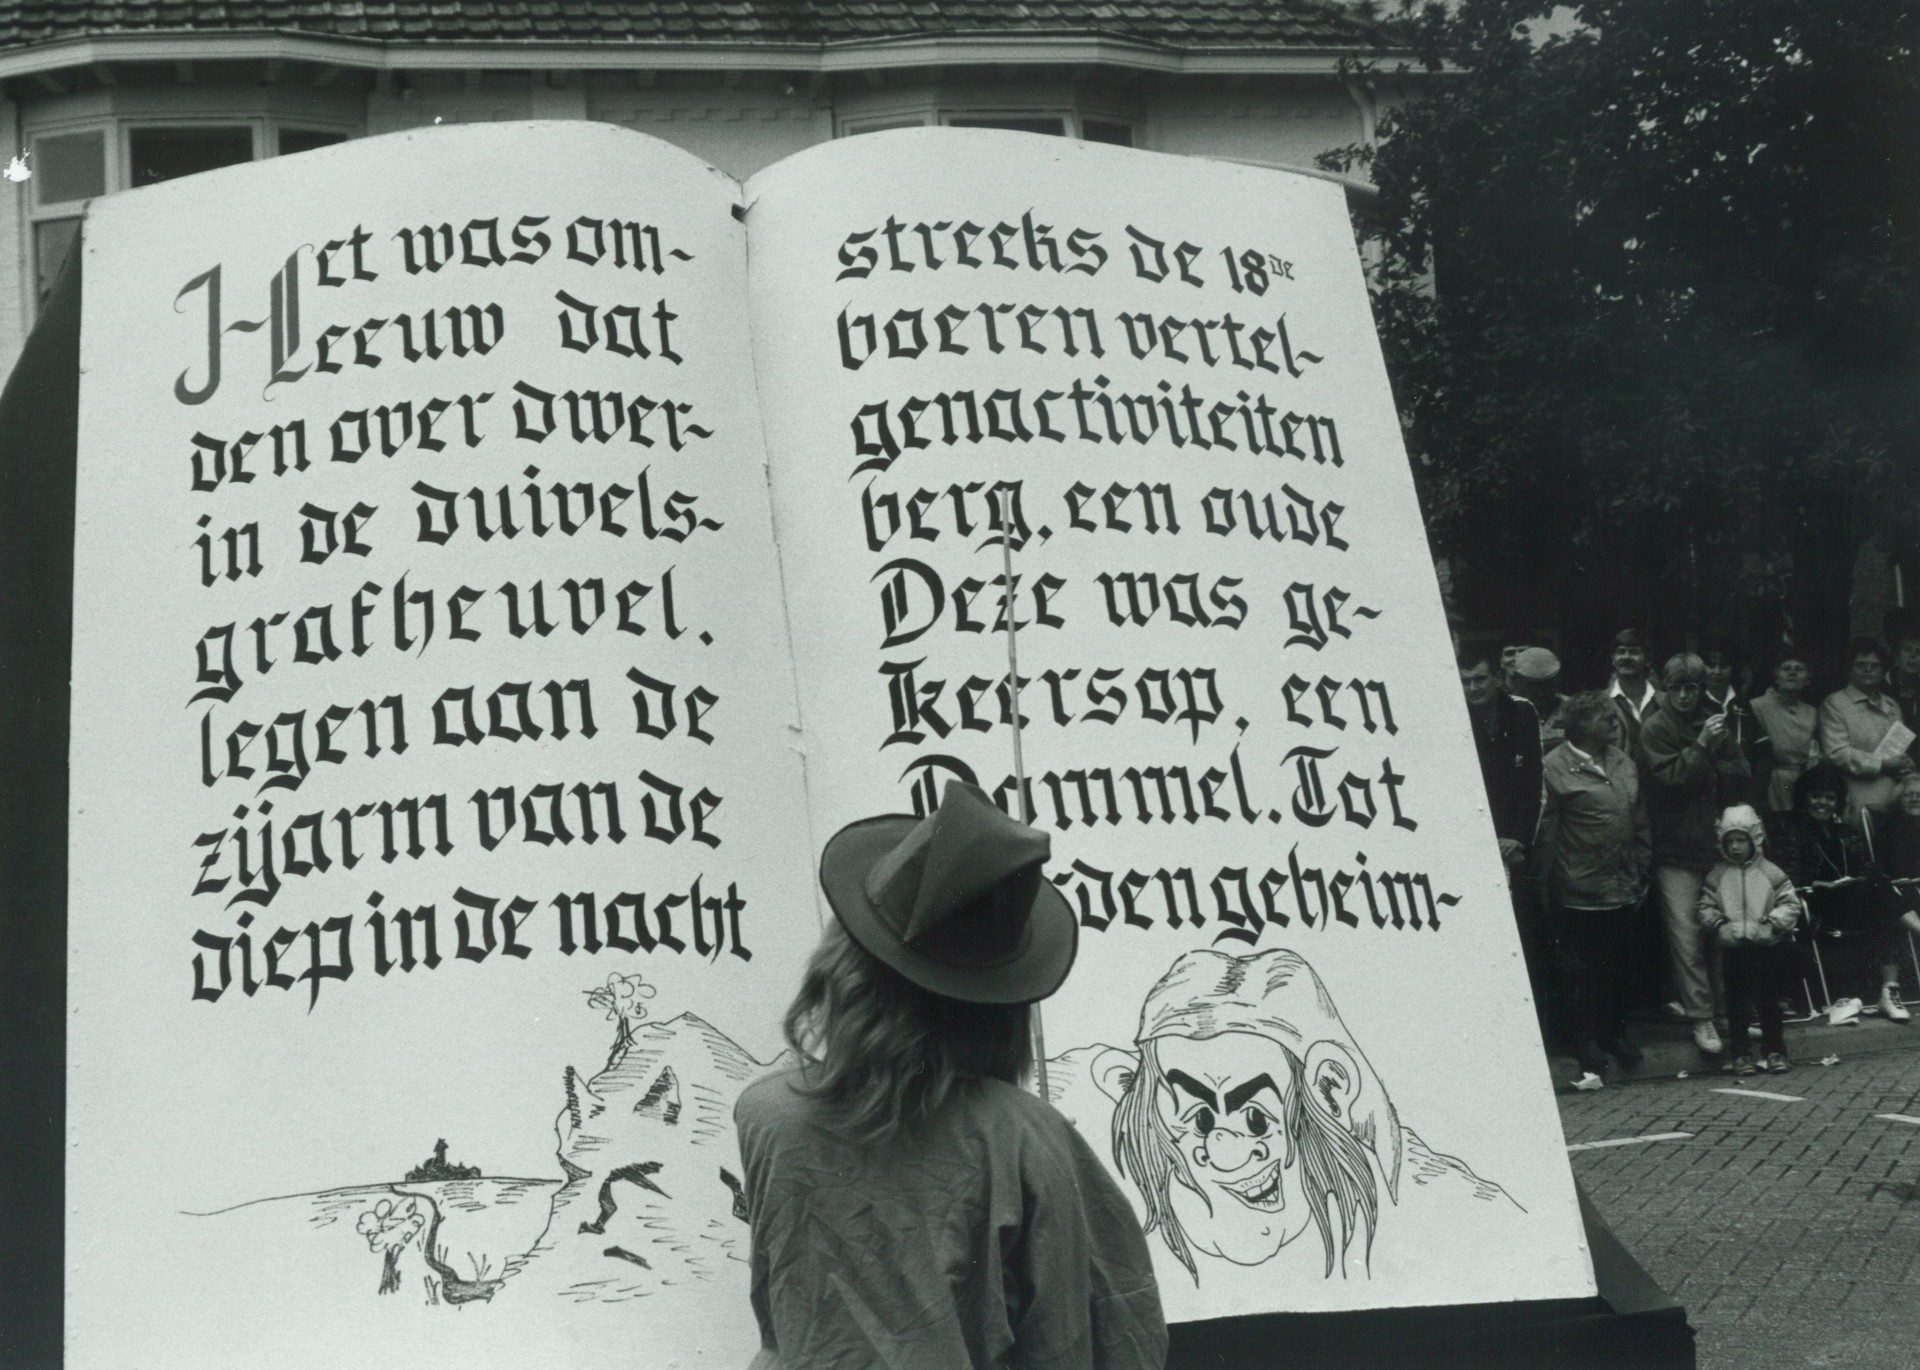 Het was om- streeks de 18de
eeuw dat boeren vertel-
den over dwer- genactiviteiten
in de duivels- berg, een oude
grafheuvel. Deze was ge-
legen aan de Keersop, een
zijarm van de Dommel. Tot
diep in de nacht geheim-